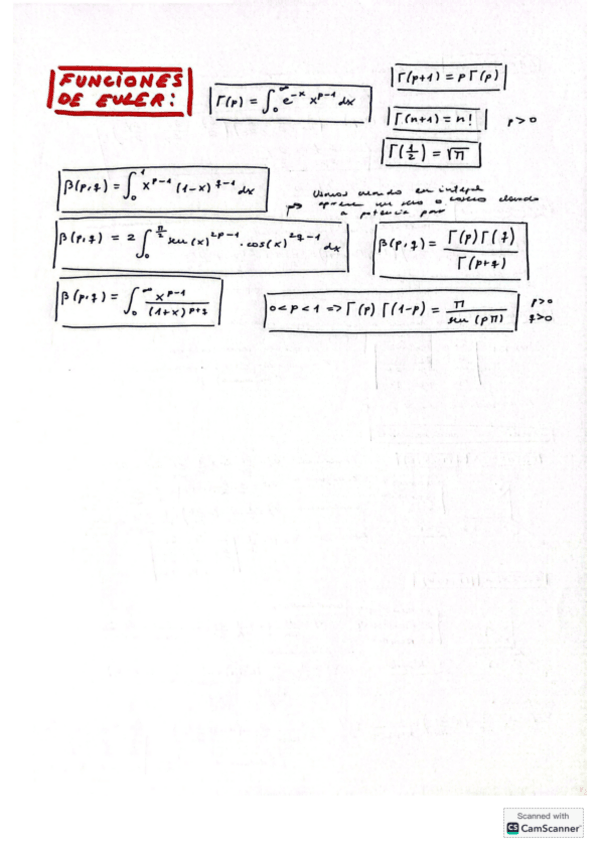 FUNCIONES
DE EULER:
Γ(p) = ∫₀^∞ e^{-x} x^{p-1} dx
Γ(p+1) = p Γ(p)
Γ(n+1) = n!
p > 0
Γ(1/2) = √π
β(p,q) = ∫₀^1 x^{p-1} (1-x)^{q-1} dx
Usamos cuando en integral
aparece un seno o coseno elevado
a potencia par
β(p,q) = 2 ∫₀^{π/2} sen(x)^{2p-1} · cos(x)^{2q-1} dx
β(p,q) = Γ(p)Γ(q) / Γ(p+q)
β(p,q) = ∫₀^∞ x^{p-1} / (1+x)^{p+q}
0 < p < 1 => Γ(p) Γ(1-p) = π / sen(pπ)
p>0
q>0
Scanned with
CS CamScanner